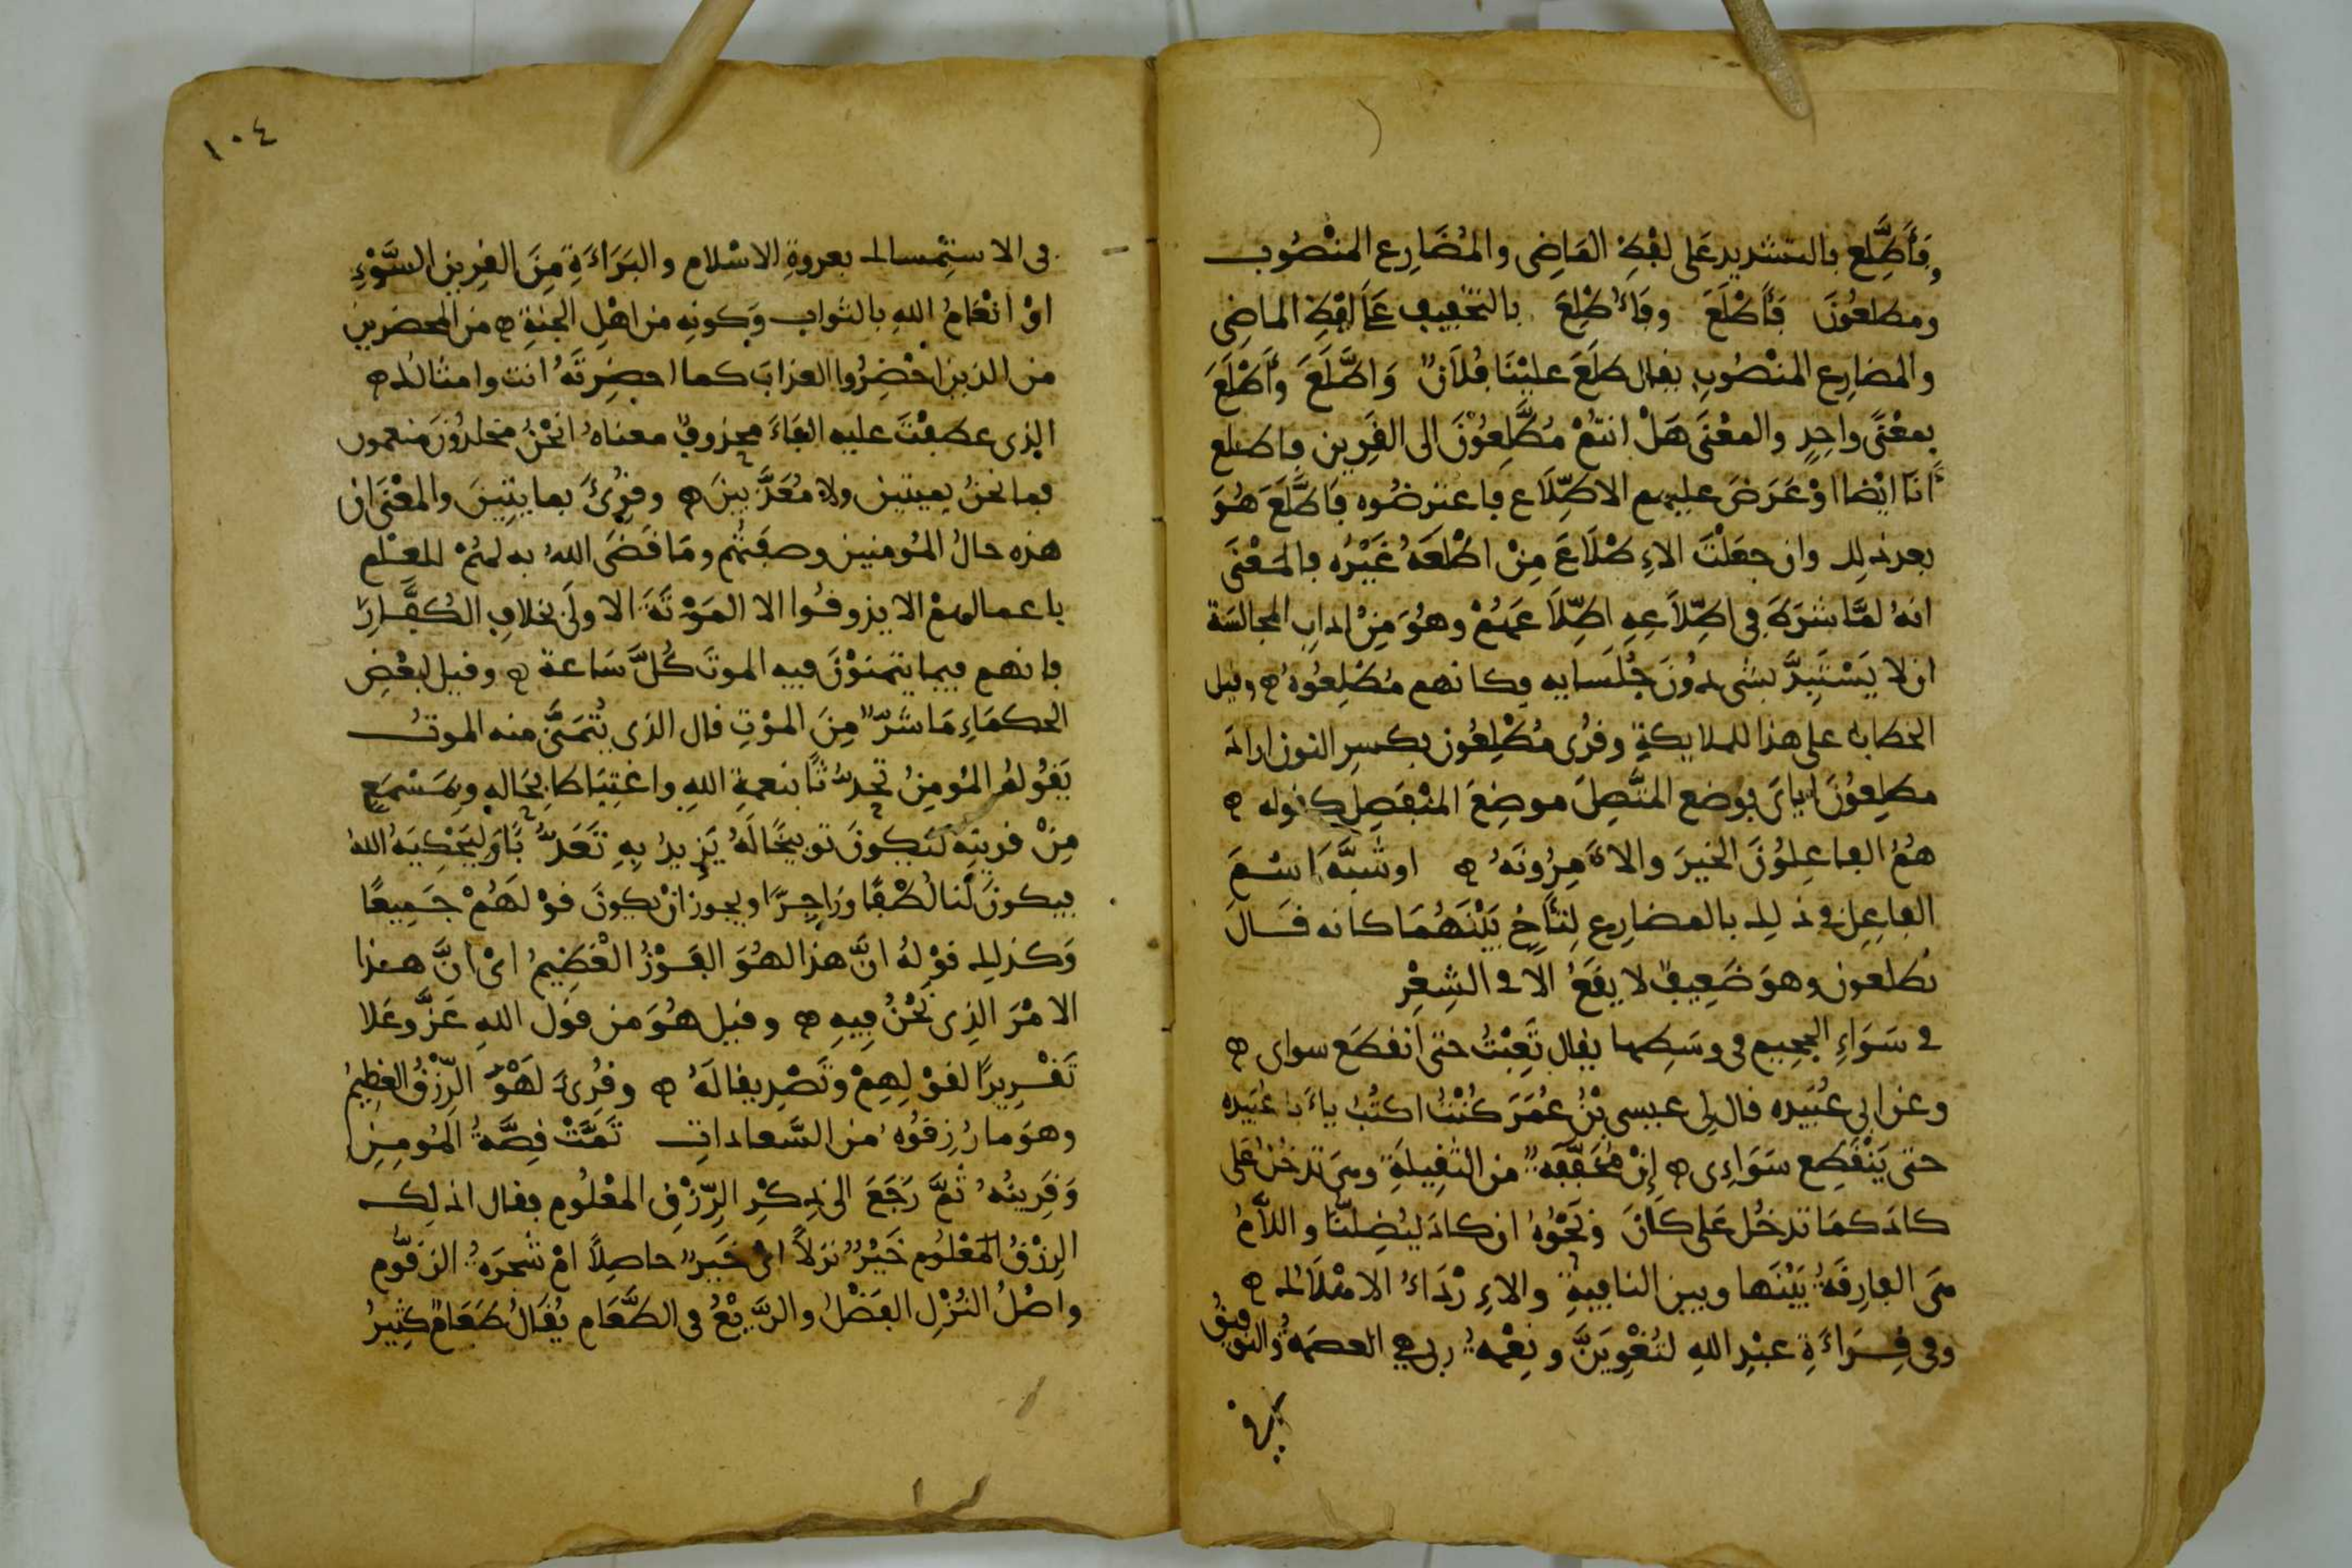 وَفَأَطَّلِع بالتشديد عَلى لفْظِ المَاضِى والمُضَارِع المنْصُوب
ومطلعُونَ فَأُطْلَعَ وفَأُطْلِعَ بالتخفيفِ عَلَى لفْظِ الماضِى
والمضارِع المنْصُوبِ يقال طَلَعَ عليْنَا فُلَانٌ وَاطَّلَعَ وأَطْلَعَ
بمعْنًى واحِدٍ والمعْنَى هَلْ انتُمْ مُطَّلِعُوْنَ الى القَرِين فاطلع
أنَا ايْضا اوْ عَرَضَ عليهم الاطِّلَاع فاعترضُوه فَاطَّلَعَ هُوَ
بعد ذلك وان جعَلْتَ الاءِطْلَاعَ مِنْ اطْلَعَهُ غَيْرُه فالمعْنَى
انهُ لمَّا شرَطَ فى اطِّلَاعِهِ اطِّلَاعَهُمْ وهُوَ مِنْ اداب المجالسَة
ان لا يَسْتَبِدَّ بشى دُونَ جُلَسايه فكانهم مُطْلِعُوْهُ ۞ وقيل
الخطاب على هذا للملايكةِ وقُرِى مُطْلِعُون بكسرِ النون اراد
مطلِعُوْنَ اياىَ فوضع المتَّصِلَ موضِعَ المنْفَصِل كقوله ۞
هُمُ الفاعِلُوْنَ الخيرَ والاٰمِرُونَهُ ۞ اوشبَّهَ اسْمَ
الفاعِل فى ذلك بالمضارِع لِتَأَخٍ بيْنَهُمَا كانه قَالَ
تطلعون وهوَ ضَعِيفٌ لا يقَعُ الا فى الشِعْرِ
فى سَوَاءِ الجحِيم فى وسَطِها يقال تَعِبْتُ حتى انقطَع سواى ۞
وعن ابى عُبَيْده قال لِى عيسى بْنُ عُمَرَ كُنْتُ اكتُبُ يأبا عُبَيْده
حتى يَنْقَطِع سَوَاءِى ۞ إنْ مُخَفَّفَةٌ من الثقِيلةِ وهىَ تدخُل عَلَى
كادَ كمَا تدخُل عَلى كانَ ونَحْوُهُ ان كادَ ليُضِلنَّا واللَّامُ
هىَ الفارِقَةُ بيْنَها وبين النافيةِ والاءِرْدَاءُ الاهْلَاك ۞
وفى قِرَاءَةِ عبْدِ اللهِ لتُغْوِيَنَّ ونِعْمةُ ربى هى العصمَةُ والتوفِيقُ
فى
١٠٤
فى الاستِمْساك بعروةِ الاسْلام والبَرَاءَةِ مِنَ القرِين السَّوْءِ
اوْ انْعَامُ اللهِ بالثواب وَكونِه من اهْلِ الجنةِ ۞ من المحضرين
من الذين احْضِرُوا العذابَ كما احضِرتَهُ انت وامثالك ۞
الذى عطفْتَ عليه الفَاءَ محذوفٌ معناهُ انَحْنُ مخلدُوْنَ منعمون
فما نحنُ بميتين ولا مُعَذَّبينَ ۞ وقرِئَ بمايتِينَ والمعْنَى ان
هذه حالُ المُومنين وصفتُهم ومَا قضَى اللهُ به لهمْ للعلم
باعمالهمْ الا يذوقُوا الا المَوْتَةَ الاولَى بخلافِ الكُفَّارِ
فانهم فيما يتمنوْنَ فيه الموتَ كُلَّ سَاعة ۞ وقيل لبعْضِ
الحكمَاءِ مَا شَرٌّ مِنَ الموْتِ قال الذى يُتَمَنَّى منه الموتُ
يَقُولهُ المُومِنُ تحدُّثًا بنعمةِ اللهِ واغتِبَاطا بِحَالِهِ وبِمَسْمَعٍ
مِنْ قرينِه لتكونَ توبيخًا لَهُ يَزِيدُ بهِ تَعَذُّبًا وَلِيَحْكِيَهُ اللهُ
فيكونَ لَنا لُطْفًا وزَاجِرًا ويجوز انْ يكونَ قوْلهُمْ جَمِيعًا
وَكذلِك قوْلهُ انَّ هذا لهُوَ الفَوْزُ العَظِيمُ اىْ انَّ هذا
الامْرَ الذِى نَحْنُ فِيهِ ۞ وقيل هُوَ من قوْل اللهِ عَزَّ وعَلا
تَقْرِيرًا لقوْلِهِمْ وتَصْدِيقا لَهُ ۞ وقُرِئَ لَهُوَ الرِّزْقُ العَظِيمُ
وهوَ ما رُزِقُوْه من السَّعادات تَمَّتْ قِصَّةُ المُومِنِ
وَقَرِينُهُ ثمَّ رَجَعَ الى ذِكْرِ الرِّزْقِ المعْلُومِ فقال اذلِك
الرِزْقُ المعْلُوم خَيْرٌ نزلاً اىْ خَيرٌ حاصِلاً امْ شجرَةُ الزقُّوم
واصْلُ النُزْلِ الفَضْلُ والرَّيْعُ فى الطَّعَام يُقالُ طَعَامٌ كثِيرُ